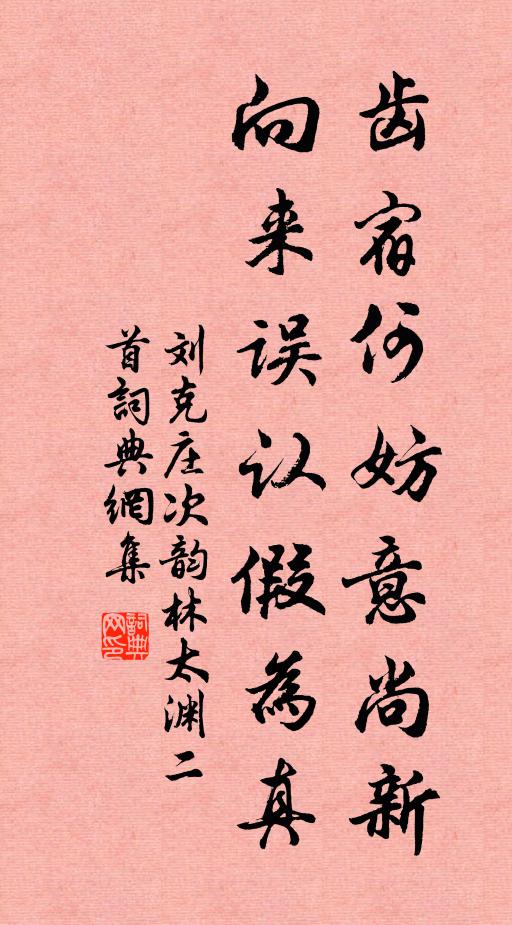 齿宿何妨意尚新
向来误认假為真
刘克庄次韵林太渊二
首詞典網集
詞典
网印